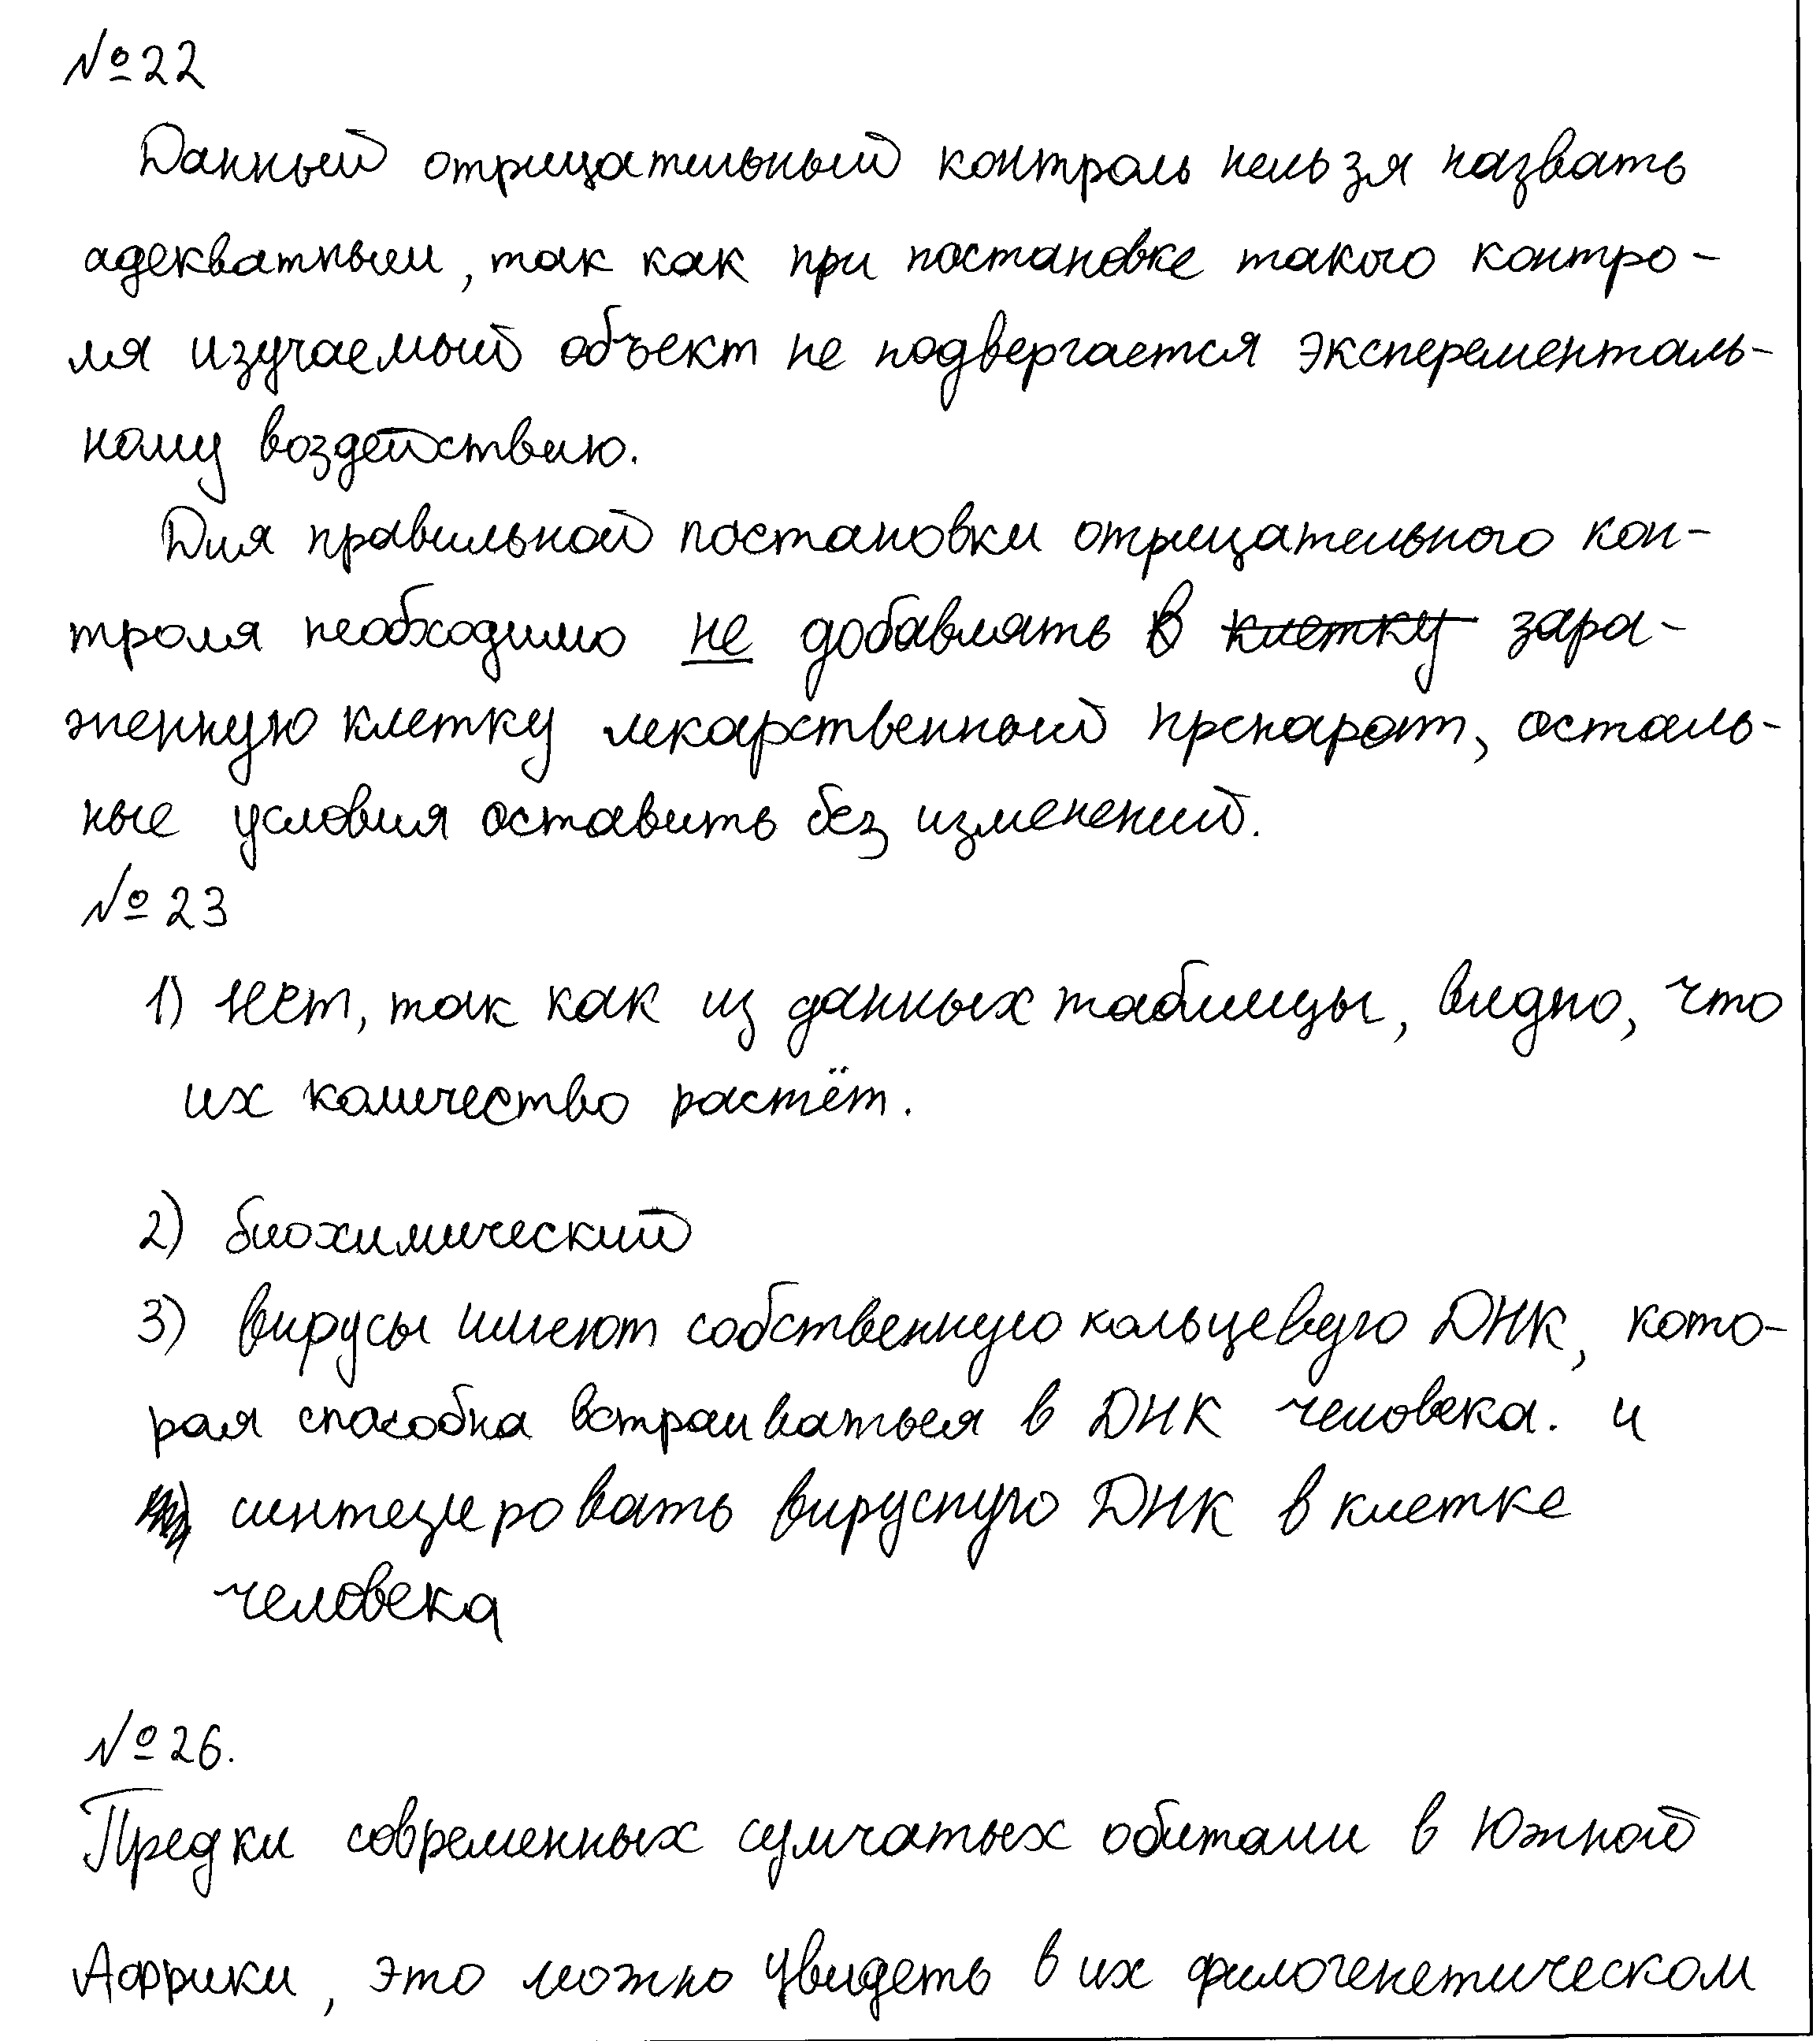 №22
Данный отрицательный контроль нельзя назвать
адекватным, так как при постановке такого контро-
ля изучаемый объект не подвергается эксперементаль-
ному воздействию.
Для правильной постановки отрицательного кон-
троля необходимо не добавлять в клетку зара-
женную клетку лекарственный препарат, осталь-
ные условия оставить без изменений.
№23
1) Нет, так как из данных таблицы, видно, что
их количество растёт.
2) биохимический
3) вирусы имеют собственную кольцевую ДНК, кото-
рая способна встраиваться в ДНК человека. и
синтезировать вирусную ДНК в клетке
человека
№26.
Предки современных сумчатых обитали в Южной
Африки, это можно увидеть в их филогенетическом